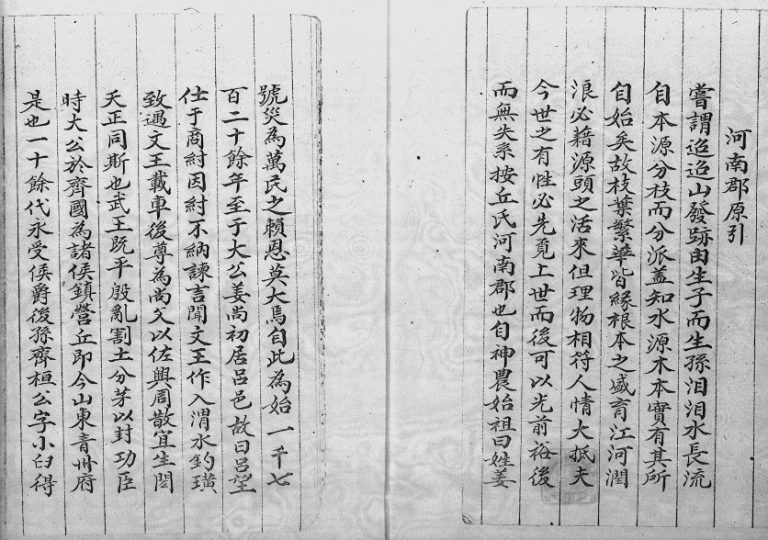 河南郡原引
嘗謂迢迢山發跡由生子而生孫汨汨水長流
自本源分枝而分派蓋知水源木本實有其所
自始矣故枝葉繁華皆緣根本之盛育江河潤
浪必藉源頭之活來但理物相符人情大抵夫
今世之有性必先覓上世而後可以光前裕後
而無失系按丘氏河南郡也自神農始祖曰姓姜
號災為萬民之賴恩莫大焉自此為始一千七
百二十餘年至于大公姜尚初居呂邑故曰呂望
仕于商紂因紂不納諫言聞文王作入渭水釣璜
致遇文王載車後尊為尚父以佐興周散宜生閎
天正同斯也武王既平殷亂割土分茅以封功臣
時大公於齊國為諸侯鎮營丘即今山東青州府
是也一十餘代永受侯爵後孫齊桓公字小臼得